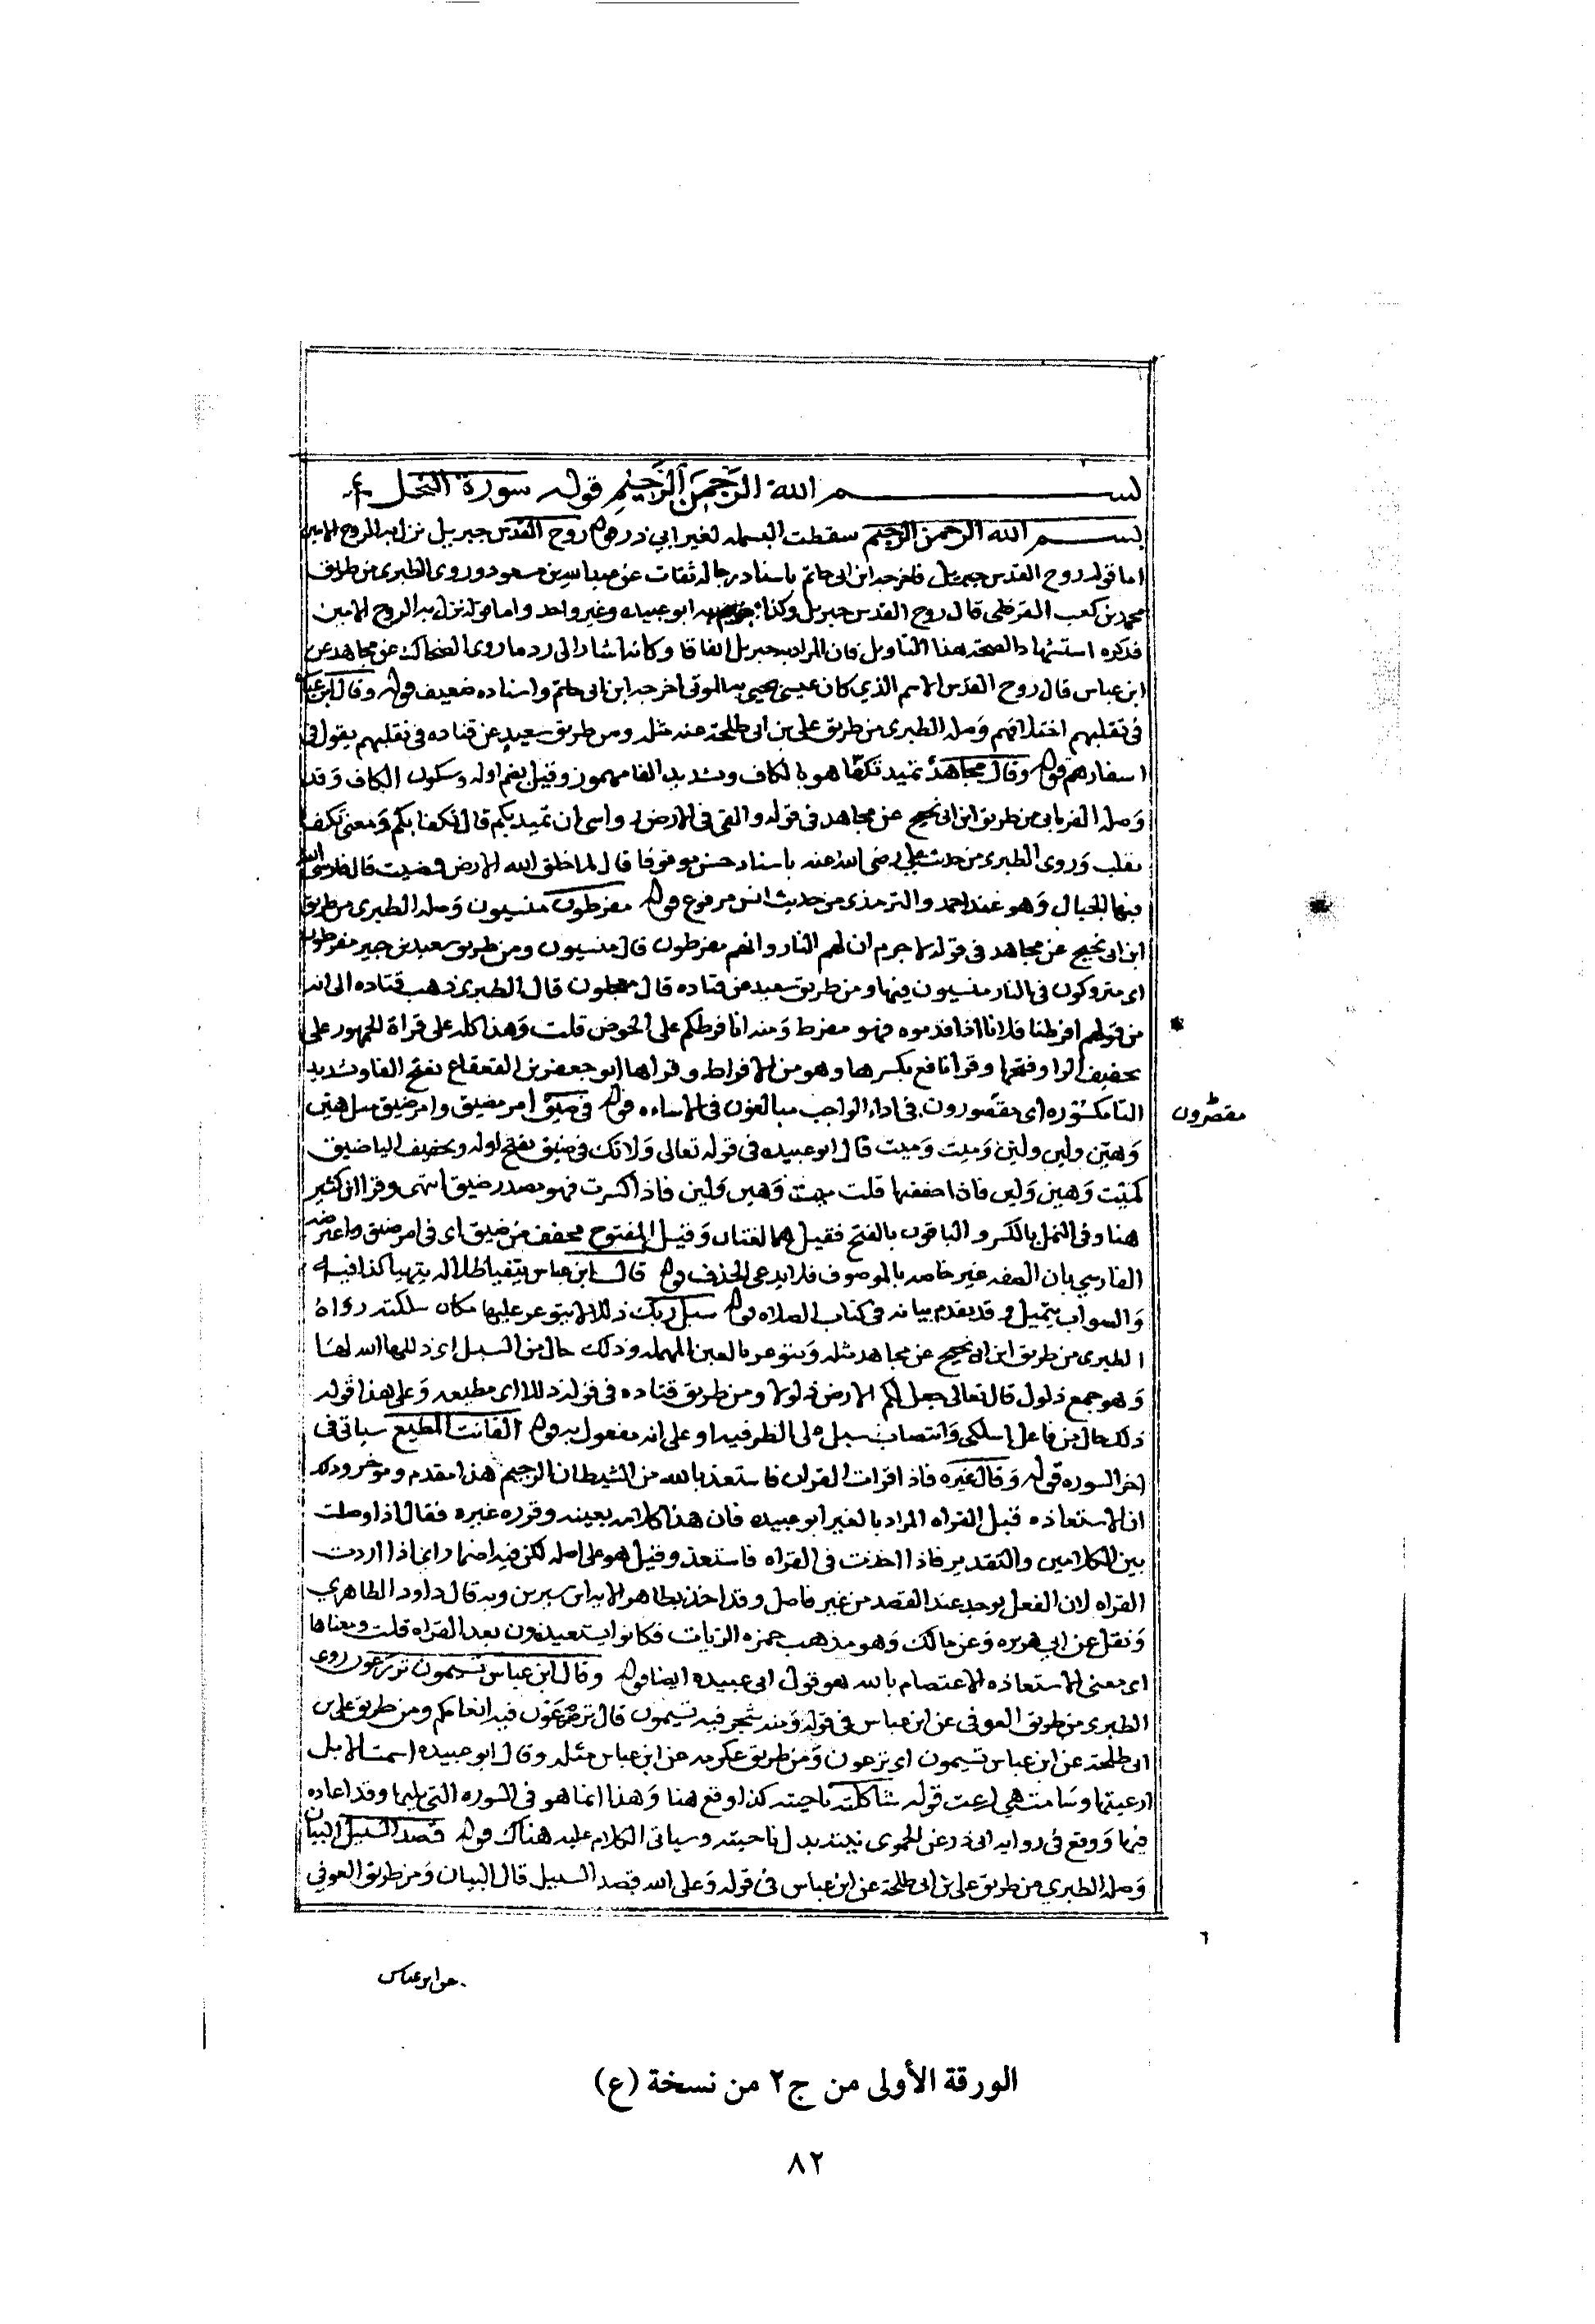 بســـــم الله الرَّحمَنِ الرَّحِيمِ قوله سورة النحل
بســـم الله الرحمن الرحيم سقطت البسمله لغير ابي ذر قوله روح القدس جبريل نزل به الروح الامين
اما قوله روح القدس جبريل فاخرجه ابن ابى حاتم باسناد رجاله ثقات عن عبد الله بن مسعود وروى الطبرى من طريق
محمد بن كعب القرظى قال روح القدس جبريل وكذا جزم به ابو عبيده وغير واحد واما قوله نزل به الروح الامين
فذكره استشهادا لصحة هذا التاويل فان المراد به جبريل اتفاقا وكانه اشار الى رد ما روى الضحاك عن مجاهد عن
ابن عباس قال روح القدس الاسم الذي كان عيسى يحيى به الموتى اخرجه ابن ابى حاتم واسناده ضعيف قوله وقال ابن عباس
فى تقلبهم اختلافهم وصله الطبرى من طريق على بن ابى طلحة عنه مثله ومن طريق سعيد عن قتاده فى تقلبهم يقول فى
اسفارهم قوله وقال مجاهد تميد تكفّا هو بالكاف وتشديد الفا مهموز وقيل بضم اوله وسكون الكاف وقد
وصله الفريابى من طريق ابن ابى نجيح عن مجاهد فى قوله والقى فى الارض رواسى ان تميد بكم قال تكفا بكم ومعنى تكفا
تقلب وروى الطبرى من حديث على رضى الله عنه باسناد حسن موقوفا قال لما خلق الله الارض قمصت قال فارسى الله
فيها الجبال وهو عند احمد والترمذى من حديث انس مرفوع قوله مفرطون منسيون وصله الطبرى من طريق
ابن ابى نجيح عن مجاهد فى قوله لا جرم ان لهم النار وانهم مفرطون قال منسيون ومن طريق سعيد بن جبير مفرطون
اى متروكون فى النار منسيون فيها ومن طريق سعيد عن قتاده قال معجلون قال الطبرى ذهب قتاده الى انه
من قولهم افرطنا فلانا اذا قدموه فهو مفرط ومنه انا فرطكم على الحوض قلت وهذا كله على قراة الجمهور على
تخفيف الرا وفتحها وقرا نافع بكسرها وهو من الافراط وقراها ابو جعفر بن القعقاع بفتح الفا وتشديد
الرا مكسوره اى مقصورون فى اداء الواجب مبالغون فى الاساءه قوله فى ضيق امر ضيق وامر ضيق مثل هين
مقصرون
وهيّن ولين وليّن وميت وميت قال ابو عبيده فى قوله تعالى ولا تك فى ضيق بفتح اوله وتخفيف اليا ضيق
كميّت وهين ولين فاذا خففتها قلت ميت وهين ولين فاذا كسرت فهو مصدر ضيق انتهى وقرا ابن كثير
هنا وفى النمل بالكسر والباقون بالفتح فقيل هما لغتان وقيل المفتوح مخفف من ضيق اى فى امر ضيق واعترضه
الفارسي بان الصفه غير خاصه بالموصوف فلا يدعى الحذف قوله قال ابن عباس يتفيا ظلاله يتهيا كذا فيه
والصواب يتميل وقد تقدم بيانه فى كتاب الصلاه قوله سبل ربك ذللا لا يتوعر عليها مكان سلكته رواه
الطبرى من طريق ابن ابى نجيح عن مجاهد مثله ويتوعر بالعين المهمله وذلك حال من السبل اى ذللها الله لها
وهو جمع ذلول قال تعالى جعل لكم الارض ذلولا ومن طريق قتاده فى قوله ذللا اى مطيعه وعلى هذا قوله
ذللا حال من فاعل اسلكى وانتصاب سبل على الظرفيه او على انه مفعول به قوله القانت المطيع سياتى فى
اخر السوره قوله وقال غيره فاذا قرات القران فاستعذ بالله من الشيطان الرجيم هذا مقدم وموخر وذلك
ان الاستعاذه قبل القراه المراد بالغير ابو عبيده فان هذا كلامه بعينه وقرره غيره فقال اذا وصلت
بين الكلامين والتقدير فاذا اخذت فى القراه فاستعذ وقيل هو على اصله لكن فيه اضمار اى اذا اردت
القراه لان الفعل يوجد عند القصد من غير فاصل وقد اخذ بظاهر الايه ابن سيرين وبه قال داود الظاهري
ونقل عن ابي هريره وعن مالك وهو مذهب حمزه الزيات فكانوا يستعيذون بعد القراه قلت ومعناها
اى معنى الاستعاذه الاعتصام بالله هو قول ابى عبيده ايضا قوله وقال ابن عباس تسيمون ترعون روى
الطبرى من طريق العوفى عن ابن عباس فى قوله ومنه شجر فيه تسيمون قال ترعون فيه انعامكم ومن طريق على بن
ابى طلحة عن ابن عباس تسيمون اى ترعون ومن طريق عكرمه عن ابن عباس مثله وقال ابو عبيده اسمت الابل
ارعيتها وسامت هى ارعت قوله شاكلته ناحيته كذا وقع هنا وهذا انما هو فى السوره التى يليها وقد اعاده
فيها ووقع فى روايه ابى ذر عن الحموى نيته بدل ناحيته وسياتى الكلام عليه هناك قوله قصد السبيل البيان
وصله الطبري من طريق على بن ابى طلحة عن ابن عباس فى قوله وعلى الله قصد السبيل قال البيان ومن طريق العوفي
عن ابن عباس
الورقة الأولى من ج٢ من نسخة (ع)
٨٢